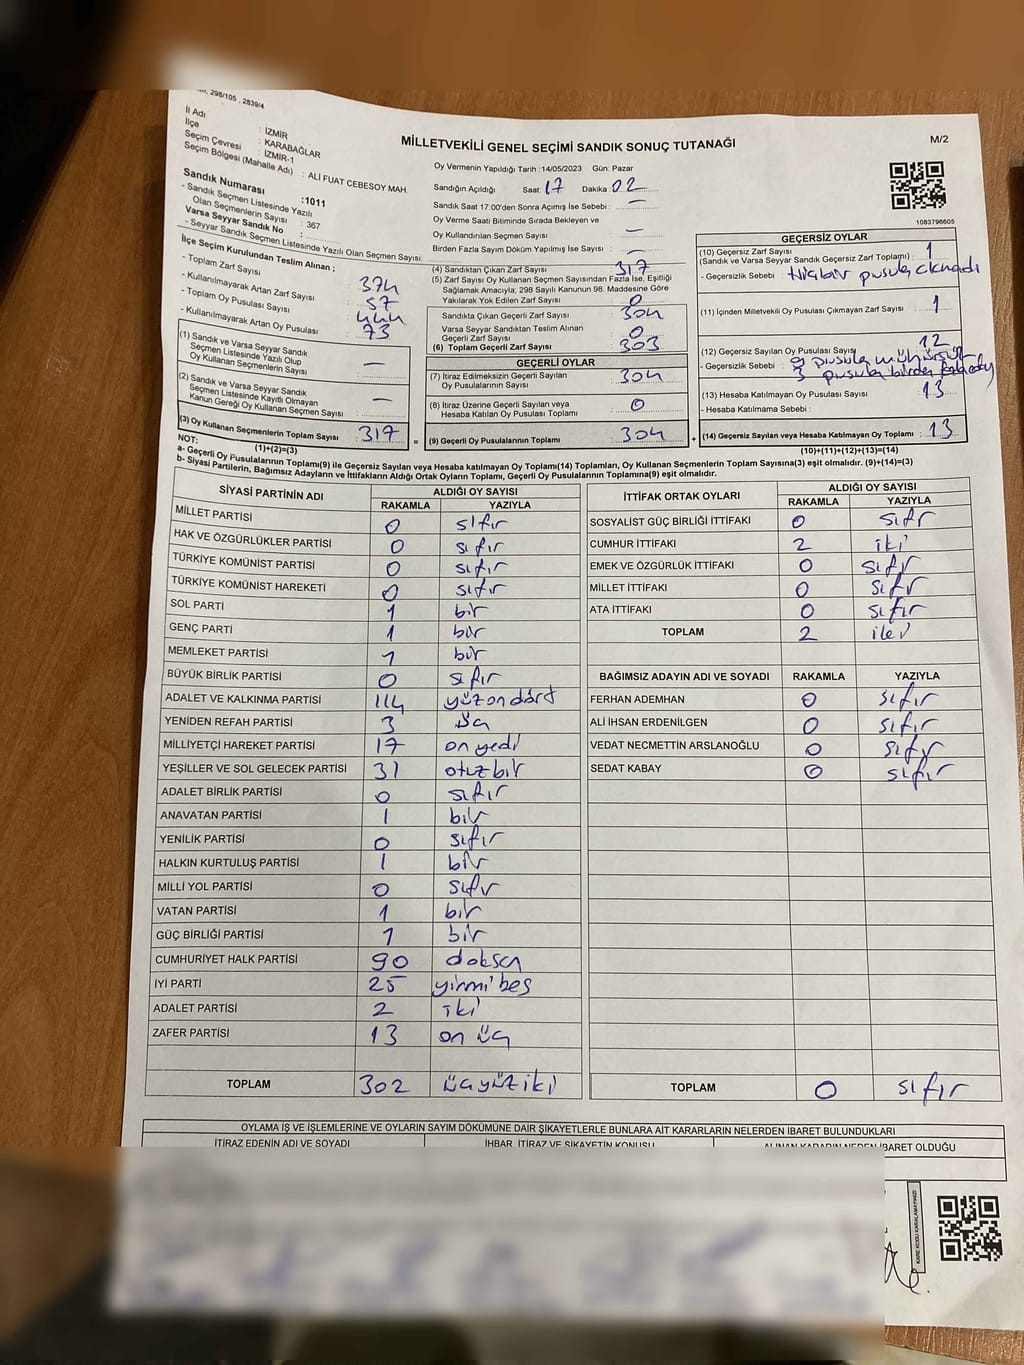 298/105 , 2839/4
İl Adı : İZMİR
İlçe : KARABAĞLAR
Seçim Çevresi : İZMİR-1
Seçim Bölgesi (Mahalle Adı) : ALİ FUAT CEBESOY MAH.
Sandık Numarası :1011
- Sandık Seçmen Listesinde Yazılı
Olan Seçmenlerin Sayısı : 367
Varsa Seyyar Sandık No :
- Seyyar Sandık Seçmen Listesinde Yazılı Olan Seçmen Sayısı:
MİLLETVEKİLİ GENEL SEÇİMİ SANDIK SONUÇ TUTANAĞI
M/2
Oy Vermenin Yapıldığı Tarih :14/05/2023 Gün: Pazar
Sandığın Açıldığı Saat 17 Dakika 02
Sandık Saat 17:00'den Sonra Açımış İse Sebebi : —
Oy Verme Saati Bitiminde Sırada Bekleyen ve
Oy Kullandırılan Seçmen Sayısı —
Birden Fazla Sayım Döküm Yapılmış İse Sayısı : —
1083796605
İlçe Seçim Kurulundan Teslim Alınan ;
- Toplam Zarf Sayısı : 374
- Kullanılmayarak Artan Zarf Sayısı : 57
- Toplam Oy Pusulası Sayısı : 444
- Kullanılmayarak Artan Oy Pusulası : 73
(1) Sandık ve Varsa Seyyar Sandık
Seçmen Listesinde Yazılı Olup
Oy Kullanan Seçmenlerin Sayısı : —
(2) Sandık ve Varsa Seyyar Sandık
Seçmen Listesinde Kayıtlı Olmayan
Kanun Gereği Oy Kullanan Seçmen Sayısı : —
(3) Oy Kullanan Seçmenlerin Toplam Sayısı : 317
(1)+(2)=(3)
(4) Sandıktan Çıkan Zarf Sayısı : 317
(5) Zarf Sayısı Oy Kullanan Seçmen Sayısından Fazla İse, Eşitliği
Sağlamak Amacıyla; 298 Sayılı Kanunun 98. Maddesine Göre
Yakılarak Yok Edilen Zarf Sayısı : 0
Sandıkta Çıkan Geçerli Zarf Sayısı : 304
Varsa Seyyar Sandıktan Teslim Alınan
Geçerli Zarf Sayısı : 0
(6) Toplam Geçerli Zarf Sayısı : 303
GEÇERLİ OYLAR
(7) İtiraz Edilmeksizin Geçerli Sayılan
Oy Pusulalarının Sayısı : 304
(8) İtiraz Üzerine Geçerli Sayılan veya
Hesaba Katılan Oy Pusulası Toplamı : 0
= (9) Geçerli Oy Pusulalarının Toplamı : 304
GEÇERSİZ OYLAR
(10) Geçersiz Zarf Sayısı
(Sandık ve Varsa Seyyar Sandık Geçersiz Zarf Toplamı) : 1
- Geçersizlik Sebebi : Hiçbir pusula çıkmadı
(11) İçinden Milletvekili Oy Pusulası Çıkmayan Zarf Sayısı : 1
(12) Geçersiz Sayılan Oy Pusulası Sayısı : 12
- Geçersizlik Sebebi : 9 pusula mühürsüz
3 pusula birden fazla oy
(13) Hesaba Katılmayan Oy Pusulası Sayısı : 13
- Hesaba Katılmama Sebebi :
+ (14) Geçersiz Sayılan veya Hesaba Katılmayan Oy Toplamı : 13
(10)+(11)+(12)+(13)=(14)
NOT:
a- Geçerli Oy Pusulalarının Toplamı(9) ile Geçersiz Sayılan veya Hesaba katılmayan Oy Toplamı(14) Toplamları, Oy Kullanan Seçmenlerin Toplam Sayısına(3) eşit olmalıdır. (9)+(14)=(3)
b- Siyasi Partilerin, Bağımsız Adayların ve İttifakların Aldığı Ortak Oyların Toplamı, Geçerli Oy Pusulalarının Toplamına(9) eşit olmalıdır.
SİYASİ PARTİNİN ADI ALDIĞI OY SAYISI
RAKAMLA YAZIYLA
MİLLET PARTİSİ 0 sıfır
HAK VE ÖZGÜRLÜKLER PARTİSİ 0 sıfır
TÜRKİYE KOMÜNİST PARTİSİ 0 sıfır
TÜRKİYE KOMÜNİST HAREKETİ 0 sıfır
SOL PARTİ 1 bir
GENÇ PARTİ 1 bir
MEMLEKET PARTİSİ 1 bir
BÜYÜK BİRLİK PARTİSİ 0 sıfır
ADALET VE KALKINMA PARTİSİ 114 yüz on dört
YENİDEN REFAH PARTİSİ 3 üç
MİLLİYETÇİ HAREKET PARTİSİ 17 on yedi
YEŞİLLER VE SOL GELECEK PARTİSİ 31 otuz bir
ADALET BİRLİK PARTİSİ 0 sıfır
ANAVATAN PARTİSİ 1 bir
YENİLİK PARTİSİ 0 sıfır
HALKIN KURTULUŞ PARTİSİ 1 bir
MİLLİ YOL PARTİSİ 0 sıfır
VATAN PARTİSİ 1 bir
GÜÇ BİRLİĞİ PARTİSİ 1 bir
CUMHURİYET HALK PARTİSİ 90 doksan
İYİ PARTİ 25 yirmi beş
ADALET PARTİSİ 2 iki
ZAFER PARTİSİ 13 on üç
TOPLAM 302 üçyüz iki
İTTİFAK ORTAK OYLARI ALDIĞI OY SAYISI
RAKAMLA YAZIYLA
SOSYALİST GÜÇ BİRLİĞİ İTTİFAKI 0 sıfır
CUMHUR İTTİFAKI 2 iki
EMEK VE ÖZGÜRLÜK İTTİFAKI 0 sıfır
MİLLET İTTİFAKI 0 sıfır
ATA İTTİFAKI 0 sıfır
TOPLAM 2 iki
BAĞIMSIZ ADAYIN ADI VE SOYADI RAKAMLA YAZIYLA
FERHAN ADEMHAN 0 sıfır
ALİ İHSAN ERDENİLGEN 0 sıfır
VEDAT NECMETTİN ARSLANOĞLU 0 sıfır
SEDAT KABAY 0 sıfır
TOPLAM 0 sıfır
OYLAMA İŞ VE İŞLEMLERİNE VE OYLARIN SAYIM DÖKÜMÜNE DAİR ŞİKAYETLERLE BUNLARA AİT KARARLARIN NELERDEN İBARET BULUNDUKLARI
İTİRAZ EDENİN ADI VE SOYADI İHBAR, İTİRAZ VE ŞİKAYETİN KONUSU ALINAN KARARIN NEDEN İBARET OLDUĞU
KARE KODU KARALAMAYINIZ!